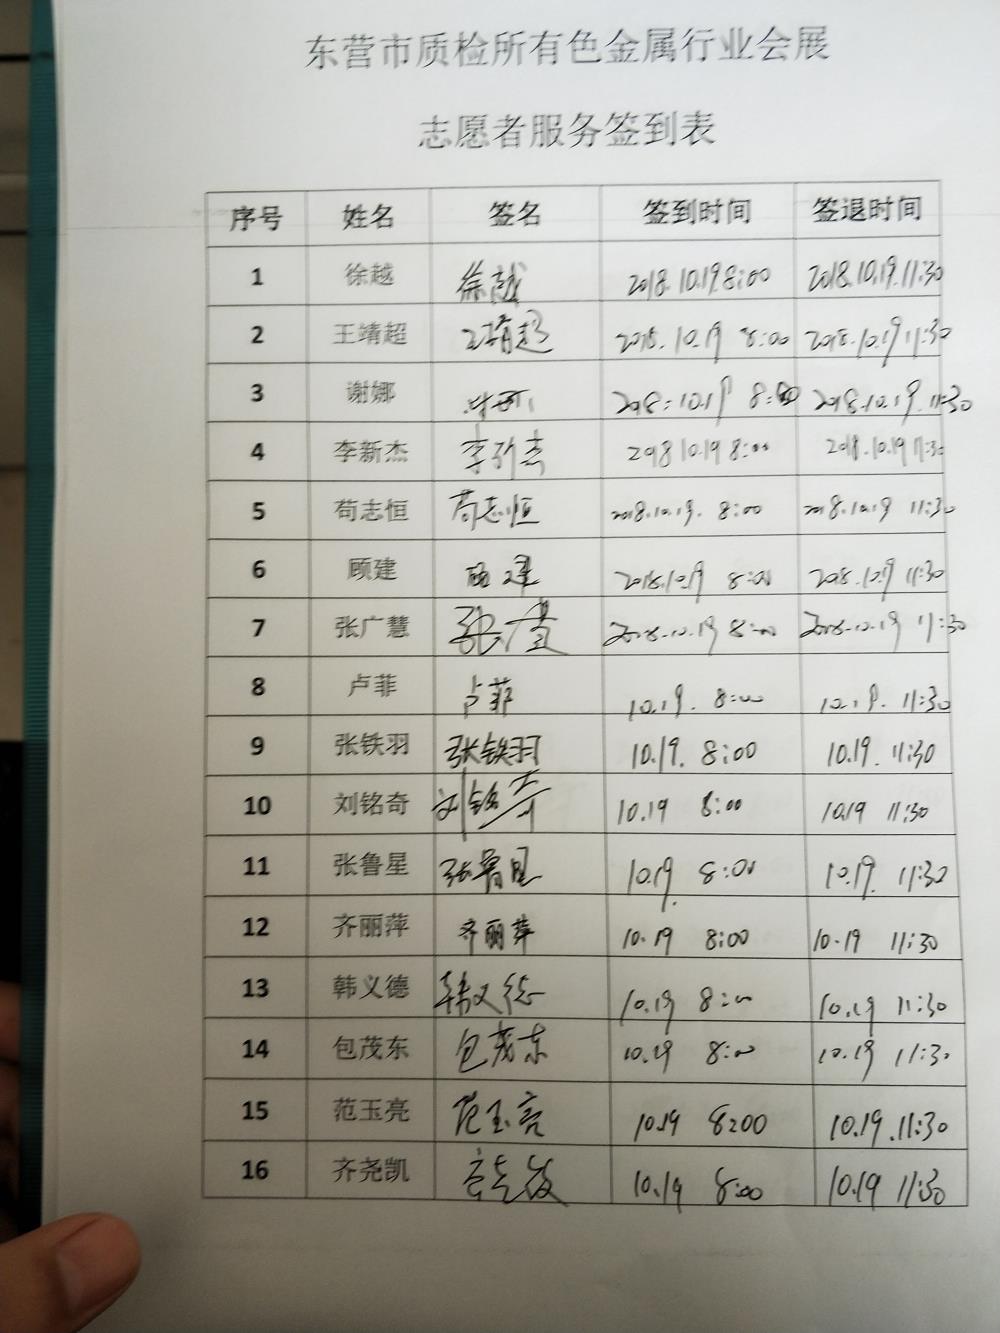 东营市质检所有色金属行业会展
志愿者服务签到表
序号 姓名 签名 签到时间 签退时间
1 徐越 徐越 2018.10.19.8:00 2018.10.19.11:30
2 王靖超 王靖超 2018.10.19 8:00 2018.10.19 11:30
3 谢娜 2018.10.19 8:00 2018.10.19.11:30
4 李新杰 李新杰 2018 10.19 8:00 2018.10.19 11:30
5 苟志恒 苟志恒 2018.10.19. 8:00 2018.10.19 11:30
6 顾建 顾建 2018.10.19 8:00 2018.10.19 11:30
7 张广慧 2018.10.19 8:00 2018.10.19 11:30
8 卢菲 卢菲 10.19. 8:00 10.19. 11:30
9 张铁羽 张铁羽 10.19. 8:00 10.19. 11:30
10 刘铭奇 刘铭奇 10.19 8:00 10.19 11:30
11 张鲁星 张鲁星 10.19. 8:00 10.19. 11:30
12 齐丽萍 齐丽萍 10.19 8:00 10.19 11:30
13 韩义德 韩义德 10.19 8:00 10.19 11:30
14 包茂东 包茂东 10.19 8:00 10.19 11:30
15 范玉亮 范玉亮 10.19 8:00 10.19.11:30
16 齐尧凯 10.19 8:00 10.19 11:30